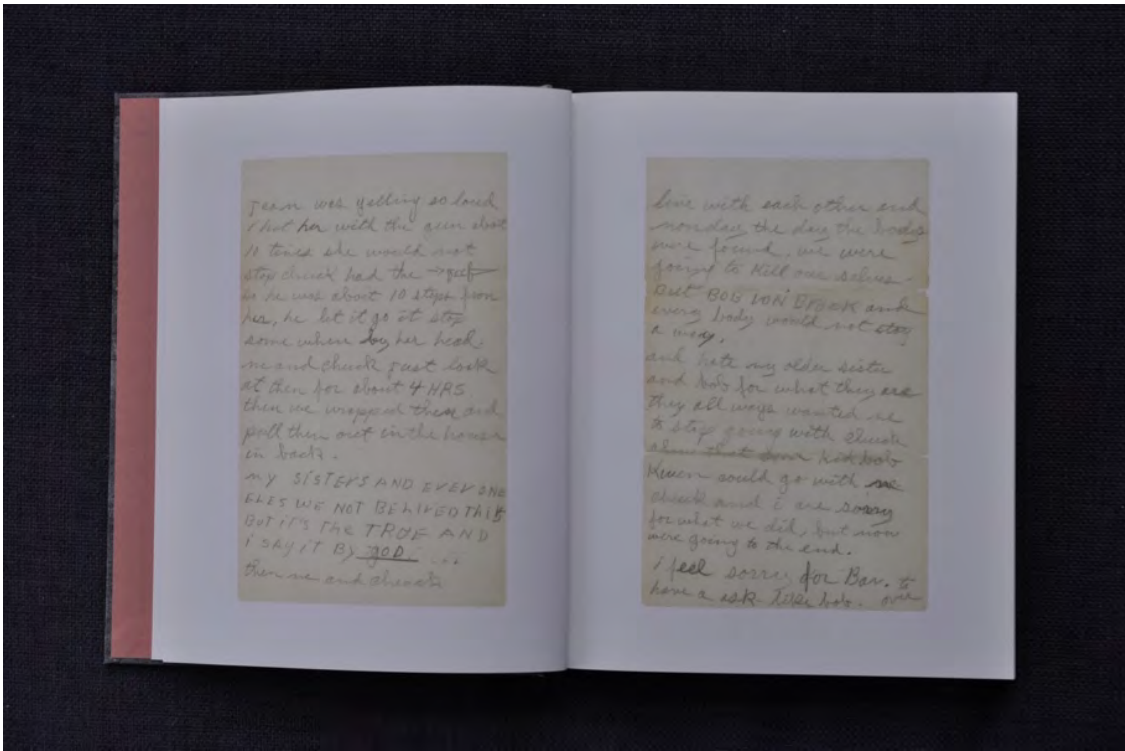 jean was yelling so loud
i hit her with the gun abot
10 times she would not
stop chuck had the
so he was about 10 steps from
her, he let it go it stop
some when by her head.
me and chuck just look
at then for about 4 HRS
then we wrapped them and
pull them out in the house
in back.
my SiSTErS AND EVErYONE
ELES WE NOT BELIVED THiS
BUT iT'S The TRUE AND
i SAY iT BY GOD ...
then me and chuck
live with each other and
monday the day the bodys
were found, we were
going to kill our selves.
BUT BOB VON BRUCK and
every body would not stay
a way.
and hate my older sister
and bob for what they are
they all ways wanted me
to stop going with chuck
that kid bob
Kwen could go with me
chuck and i are sorry
for what we did, but now
were going to the end.
i feel sorry for Bar. to
have a ask like bob. over